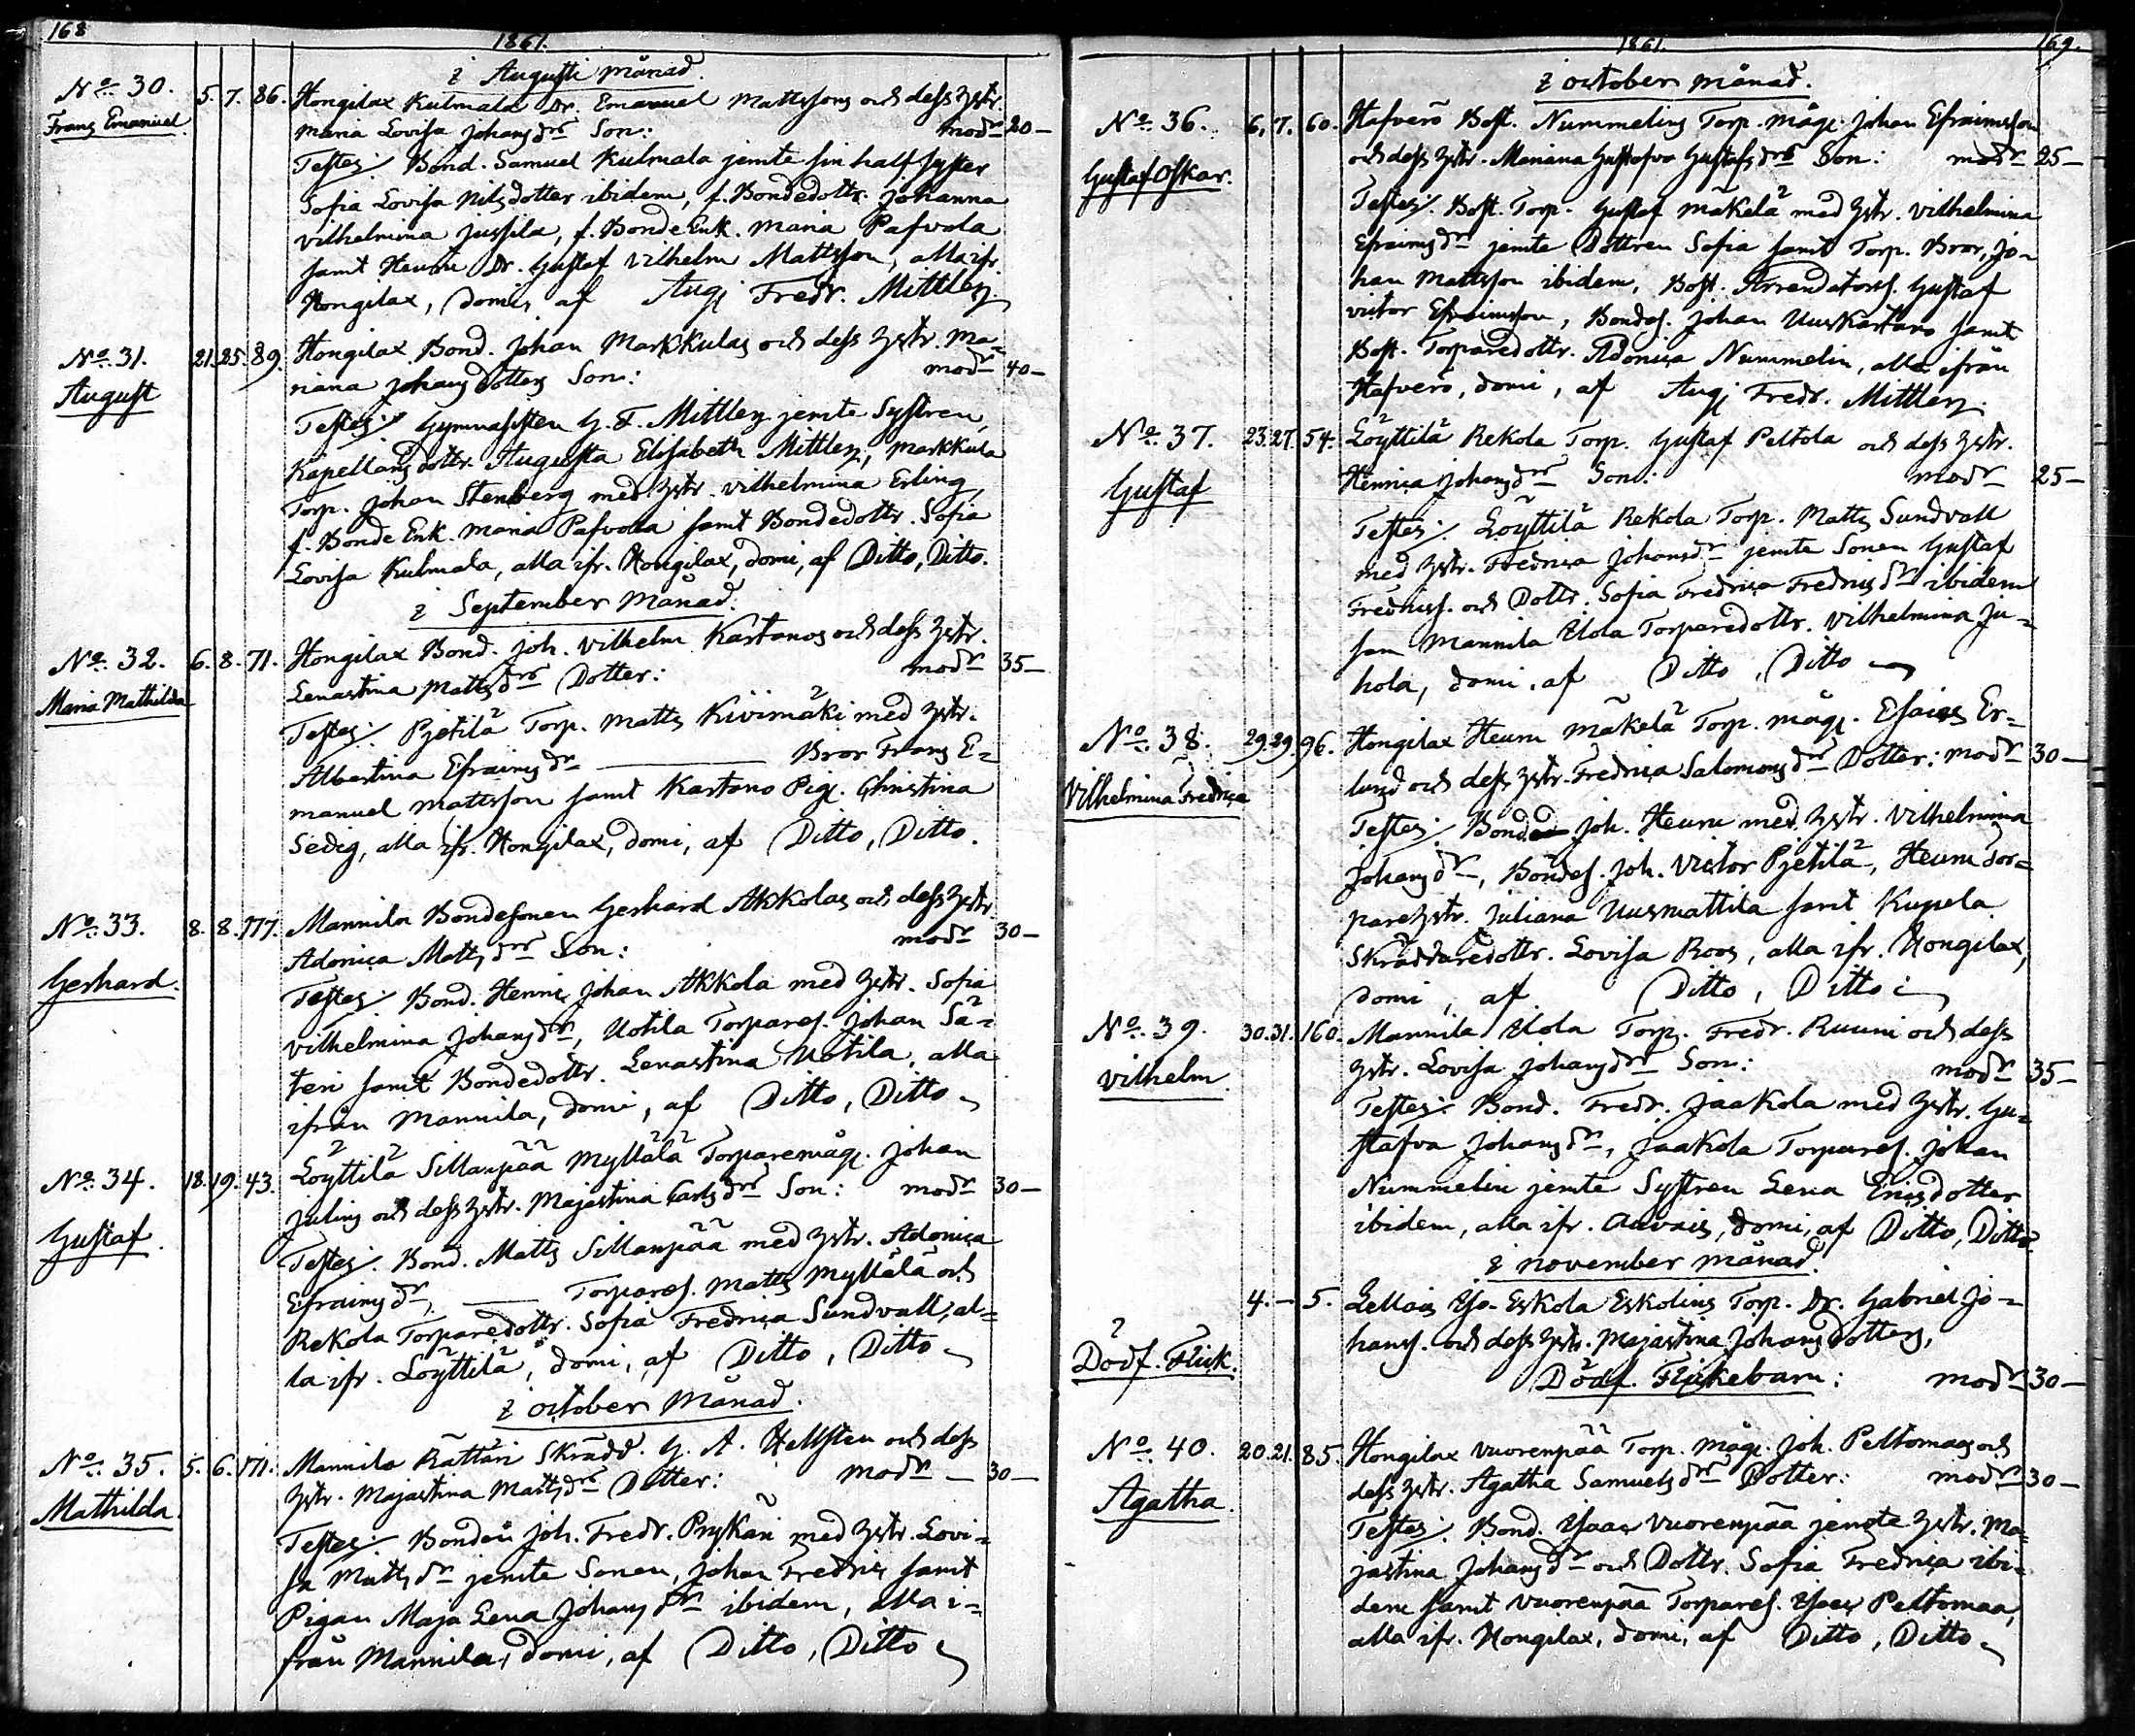 168
1861.
i Augusti månad.
No. 30. 5. 7. 86. Hongilax Kulmala Dr. Emanuel Mattssons och dess hstr.
Frans Emanuel. Maria Lovisa Johans drs Son: modr 20—
Testes: Bond. Samuel Kulmala jemte sin half syster
Sofia Lovisa Nilsdotter ibidem, f. Bondedottr. Johanna
Vilhelmina Jussila, f. Bonde Enk. Maria Pafvola
samt Heurn Dr. Gustaf Vilhelm Mattsson, alla ifr.
Hongilax, domi, af Aug. Fredr. Mittler.
No. 31. 21. 25. 89. Hongilax Bond. Johan Markkulas och dess hstr. Ma-
August riana Johansdotters Son: modr 40—
Testes: Gymnasisten G. F. Mittler jemte Systren,
Kapellansdottr. Augusta Elisabeth Mittler, Markkula
Torp. Johan Stenberg med hstr. Vilhelmina Erling,
f. Bonde Enk. Maria Pafvola samt Bondedottr. Sofia
Lovisa Kulmala, alla ifr. Hongilax, domi, af Ditto, Ditto.
i September Månad.
No. 32. 6. 8. 71. Hongilax Bond. Joh. Vilhelm Kartanos och dess hstr.
Maria Mathilda Lenastina Matts drs Dotter: modr 35—
Testes: Pjetilä Torp. Matts Kivimäki med hstr.
Albertina Efraims dr — Bror Frans E-
manuel Mattsson samt Kartano Pig. Christina
Sedig, alla ifr. Hongilax, domi, af Ditto, Ditto.
No. 33. 8. 8. 177. Mannila Bondesonen Gerhard Akkolas och dess hstr.
Gerhard. Adonica Matts drs Son: modr 30—
Testes: Bond. Henric Johan Akkola med hstr. Sofia
Vilhelmina Johans dr, Uotila Torpares. Johan Sä-
teri samt Bondedottr. Lenastina Uotila, alla
ifrån Mannila, domi, af Ditto, Ditto
No. 34. 18. 19. 43. Löyttilä Sillanpää Myllälä Torparemåg. Johan
Gustaf. Julins och dess hstr. Majastina Carls drs Son: modr 30—
Testes: Bond. Matts Sillanpää med hstr. Adonica
Efraims dr, — Torpares. Matts Myllälä och
Rekola Torparedottr. Sofia Fredrica Sundvall, al-
la ifr. Löyttilä, domi, af Ditto, Ditto
i October Månad.
No. 35. 5. 6. 171. Mannila Rättäri Skrädd. G. A. Hellsten och dess
Mathilda. hstr. Majastina Matts drs Dotter: modr — 30—
Testes: Bonden Joh. Fredr. Prykäri med hstr. Lovi-
sa Matts dr jemte Sonen, Johan Fredric samt
Pigan Maja Lena Johans dr ibidem, alla i-
från Mannila, domi, af Ditto, Ditto
1861.
169.
i October månad.
No. 36. 6. 7. 60. Hafverö Bost. Nummelins Torp. måg. Johan Efraimsson
Gustaf Oskar. och dess hstr. Mariana Gustafva Gustafs drs Son: modr 25—
Testes: Bost. Torp. Gustaf Mäkelä med hstr. Vilhelmina
Efraims dr jemte Dottren Sofia samt Torp. Bror, Jo-
han Mattsson ibidem, Bost. Arrendators. Gustaf
Victor Efraimsson, Bondes. Johan Uuskartano samt
Bost. Torparedottr. Adonica Nummelin, alla ifrån
Hafverö, domi, af Aug. Fredr. Mittler.
No. 37. 23. 27. 54. Löyttilä Rekola Torp. Gustaf Peltola och dess hstr.
Gustaf Henrica Johans drs Son: modr 25—
Testes: Löyttilä Rekola Torp. Matts Sundvall
med hstr. Fredrica Johansdr jemte Sonen Gustaf
Fredrics. och Dottr. Sofia Fredrica Fredrics dr ibidem
sam Mannila Ylola Torparedottr. Vilhelmina Ju-
hola, domi, af Ditto, Ditto
No. 38. 29. 29. 96. Hongilax Heurn Mäkelä Torp. måg. Esaias Er-
Vilhelmina Fredrica lund och dess hstr. Fredrica Salomons drs Dotter: modr 30—
Testes: Bond Joh. Heurn med hstr. Vilhelmina
Johans dr, Bondes. Joh. Victor Pjetilä, Heurn Tor-
parehstr. Juliana Uusmattila samt Kupela
Skräddaredottr. Lovisa Roos, alla ifr. Hongilax,
domi, af Ditto, Ditto
No. 39. 30. 31. 160. Mannila Ylola Torp. Fredr. Ruuni och dess
Vilhelm. hstr. Lovisa Johans drs Son: modr 35—
Testes: Bond. Fredr. Jaakola med hstr. Gu-
stafva Johans dr, Jaakola Torpares. Johan
Nummelin jemte Systren Lena Ericsdotter
ibidem, alla ifr. Auvais, domi, af Ditto, Ditto.
i November månad.
4. — 5. Lellais Yso-Eskola Eskolins Torp. Dr. Gabriel Jo-
hans. och dess hstr. Majastina Johansdotters,
Dödf. Flick. Dödf. Flickebarn: modr 30—
No. 40. 20. 21. 85. Hongilax Vuorenpää Torp. måg. Joh. Peltomaas och
Agatha. dess hstr. Agatha Samuels drs Dotter: modr 30—
Testes: Bond. Isaac Vuorenpää jemte hstr. Ma-
jastina Johans dr och Dottr. Sofia Fredrica ibi-
dem samt Vuorenpää Torpares. Isaac Peltomaa,
alla ifr. Hongilax, domi, af Ditto, Ditto